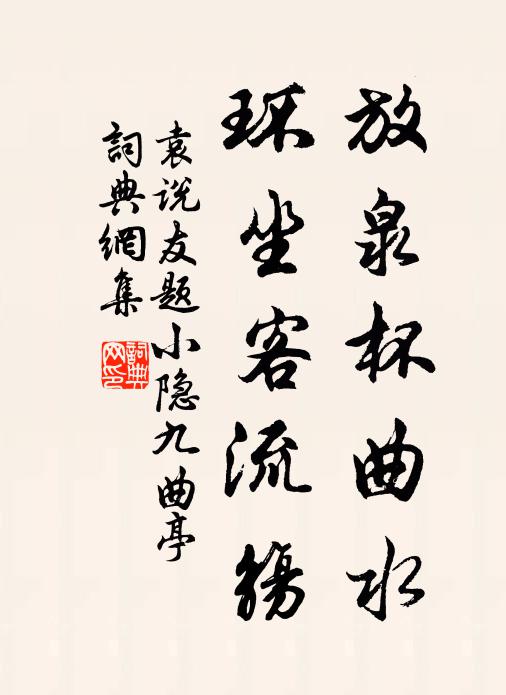 放泉杯曲水
环坐客流觞
袁说友题小隐九曲亭
詞典網集
詞典网印